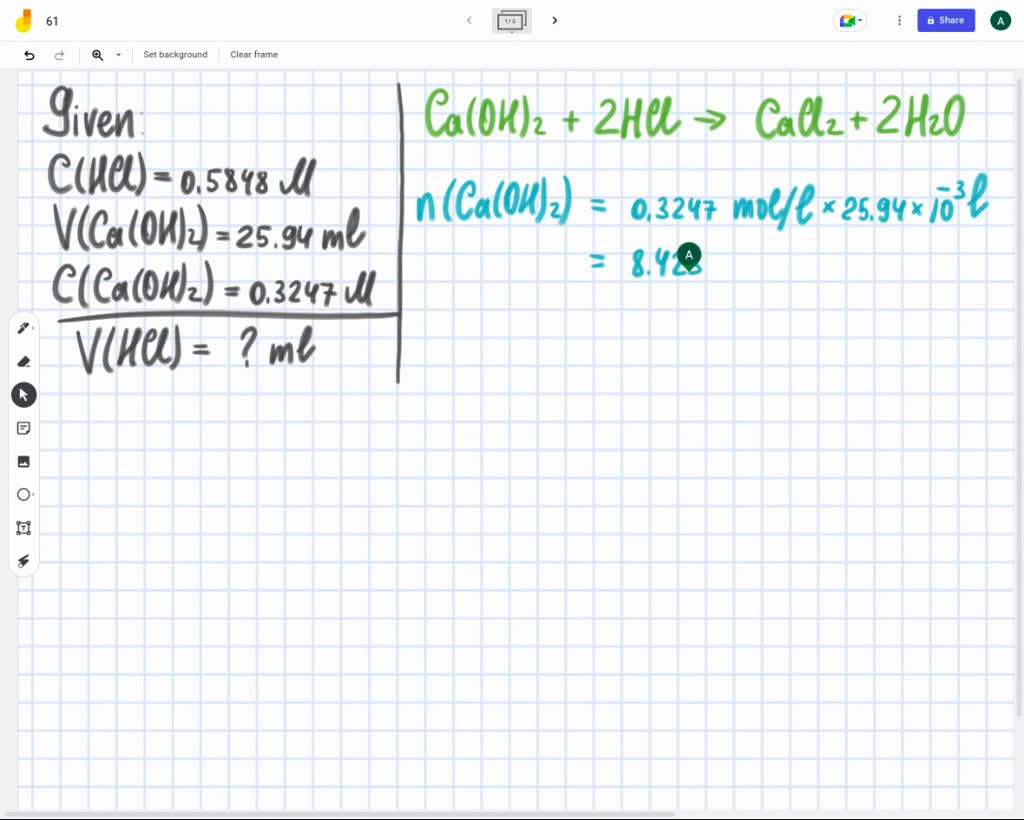 61
1/3
Share
A
Set background
Clear frame
Given:
C(HCl) = 0.5848 M
V(Ca(OH)₂) = 25.94 ml
C(Ca(OH)₂) = 0.3247 M
V(HCl) = ? ml
Ca(OH)₂ + 2HCl → CaCl₂ + 2H₂O
n(Ca(OH)₂) = 0.3247 mol/l × 25.94 × 10⁻³ l
= 8.42
A